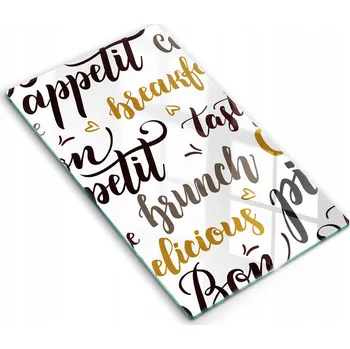 appetit
breakf
on
tast
petit
brunch
pi
elicious
Bon